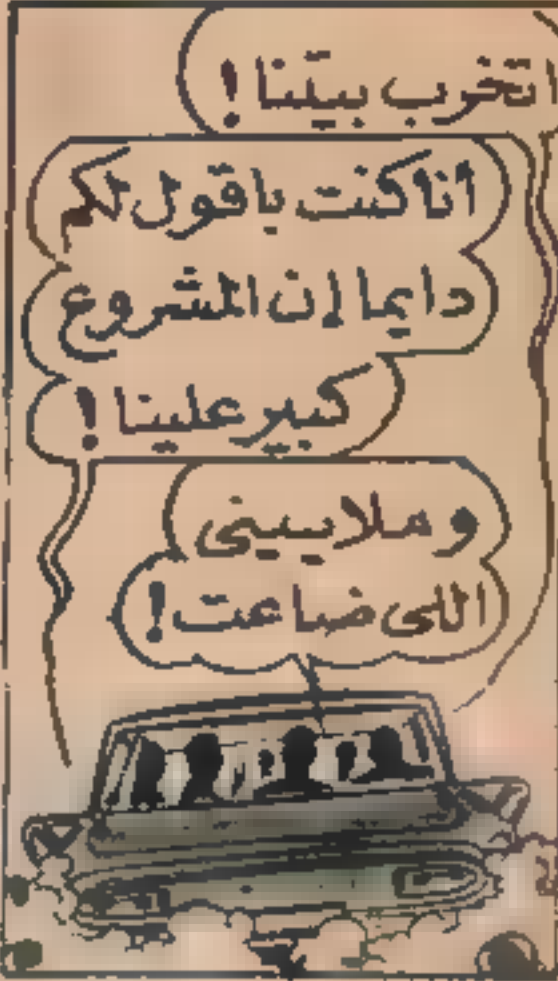 اتخرب بيتنا!
أنا كنت باقول لكم
دايما إن المشروع
كبير علينا!
وملاييني
اللى ضاعت!